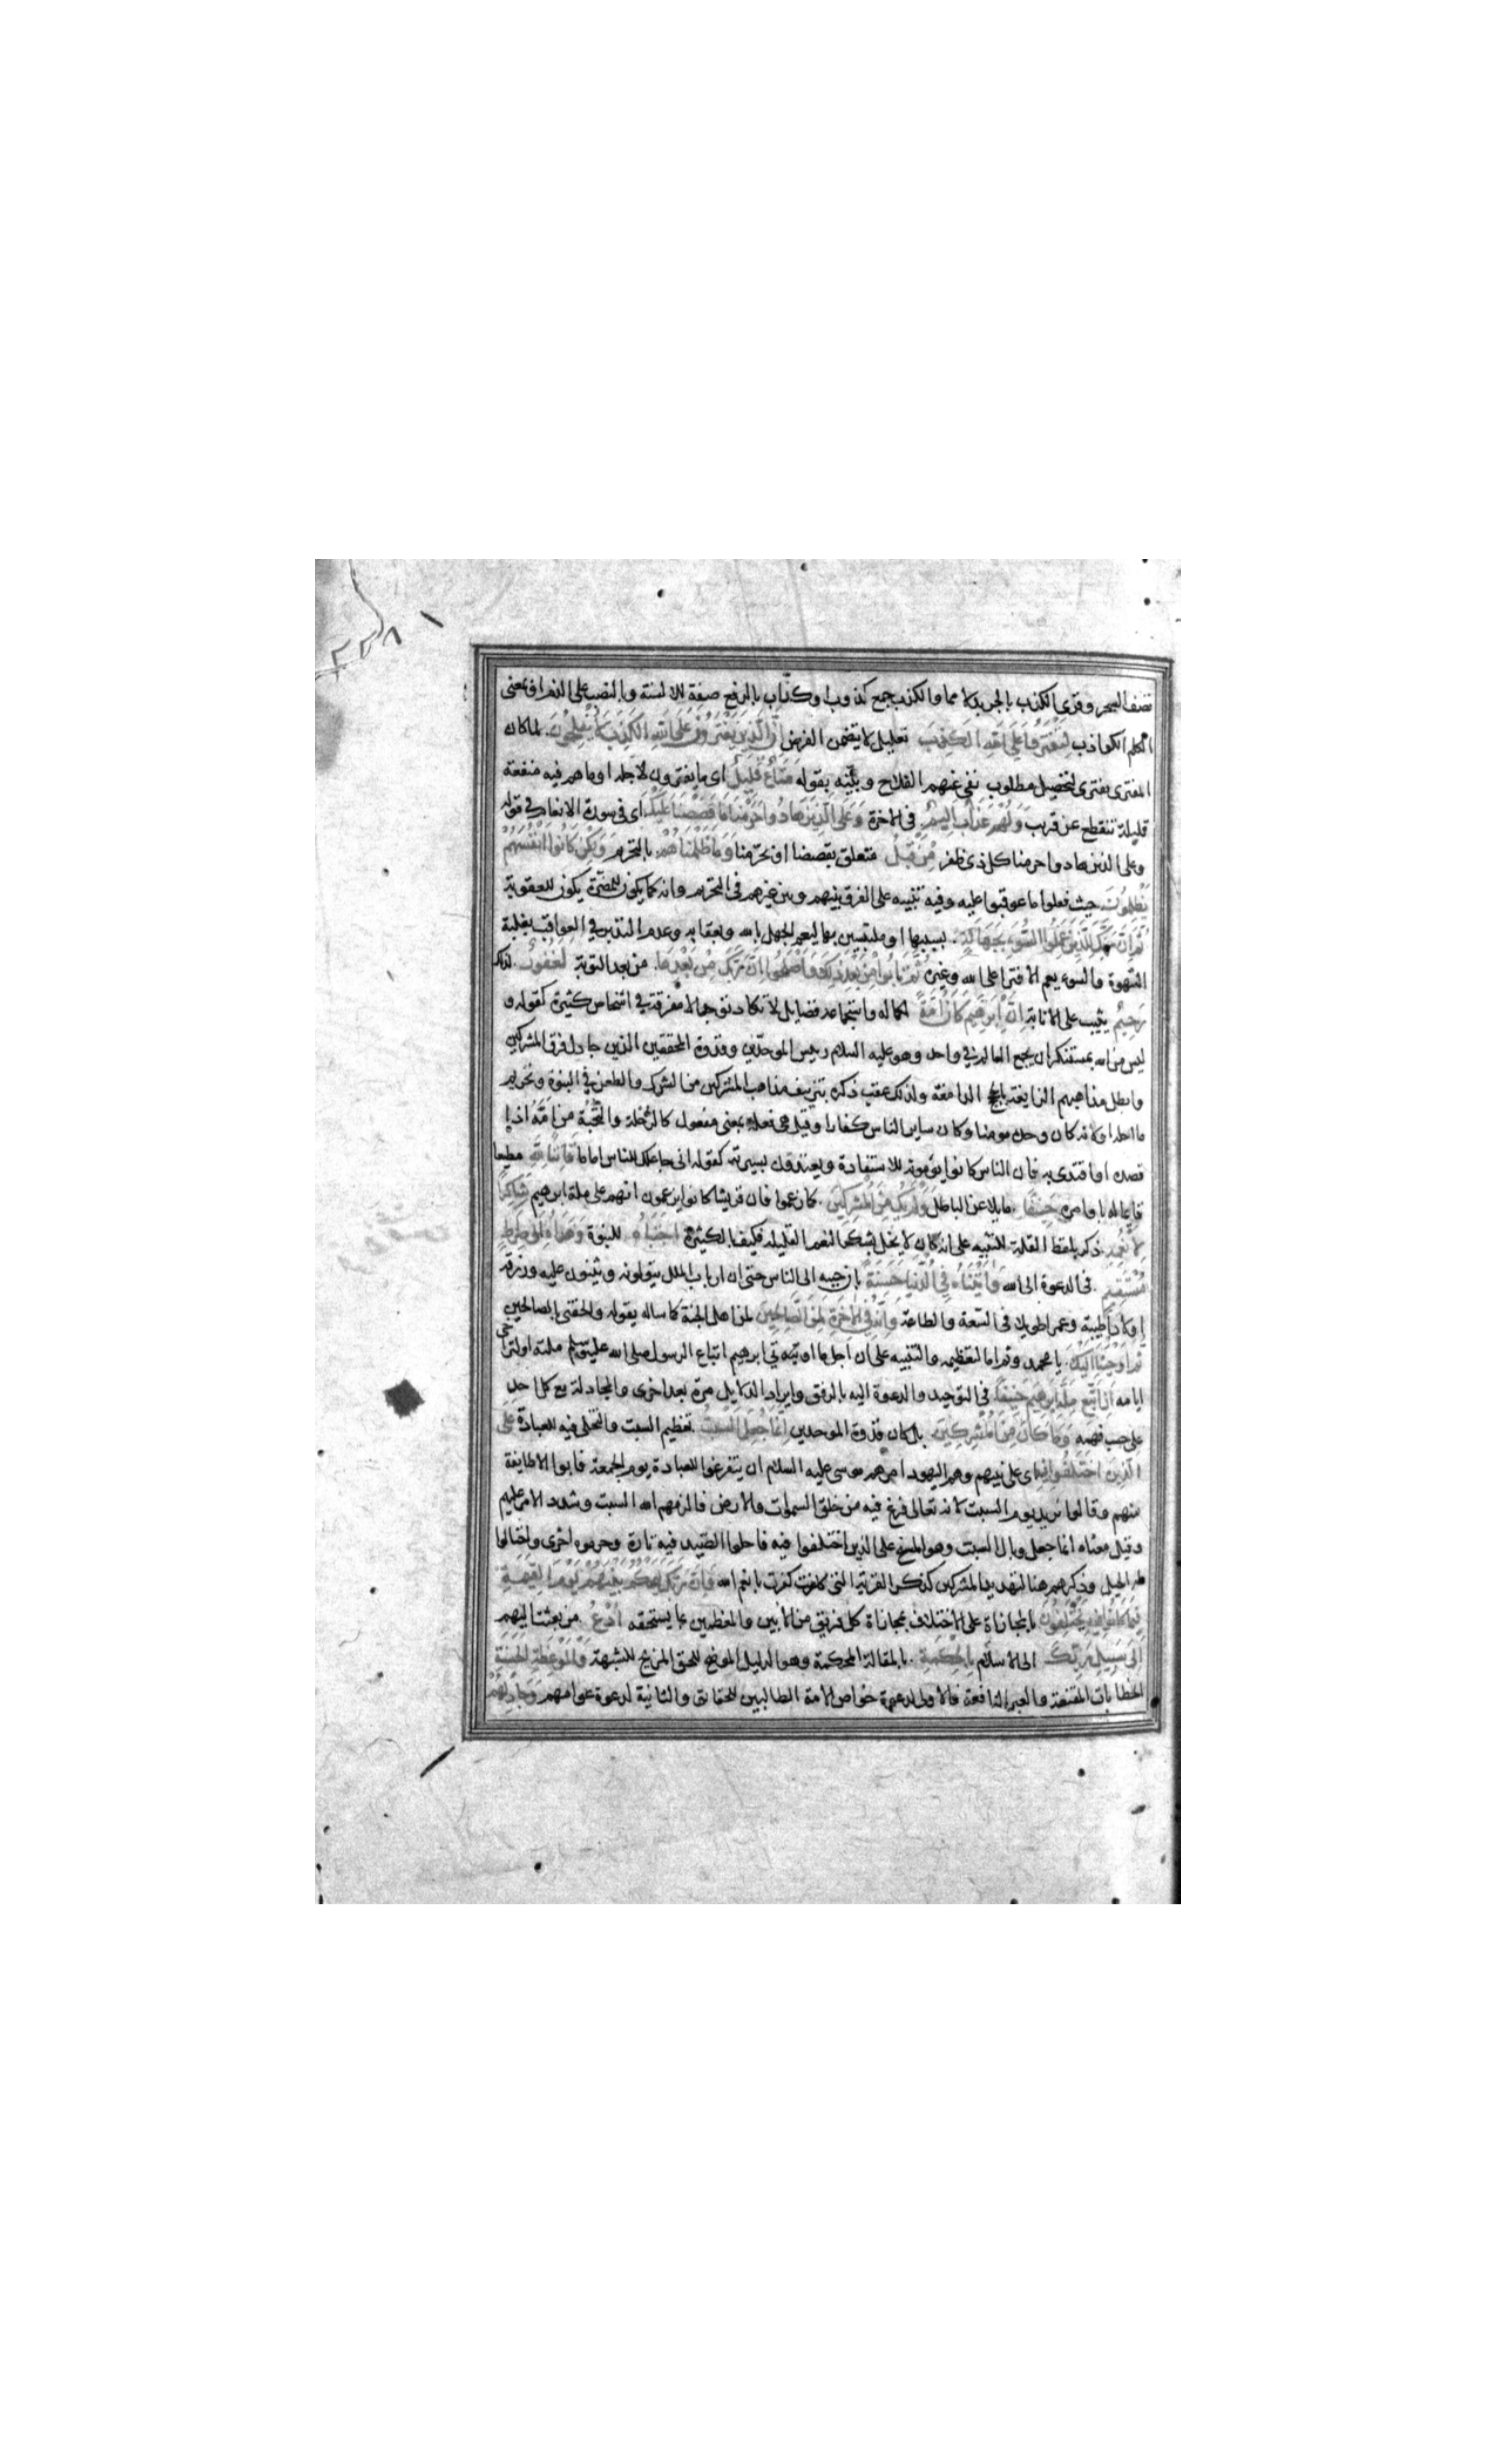 تصف السحر وقرئ الكذب بالجر بدلا مما والكذب جمع كذوب او كذاب بالرفع صفة للالسنة وبالنصب على الذم او بمعنى
الكلم الكواذب لتفتروا على الله الكذب تعليل لا يتضمن الغرض ان الذين يفترون على الله الكذب لا يفلحون لما كان
المفترى يفترى لتحصيل مطلوب نفى عنهم الفلاح وبينه بقوله متاع قليل اى ما يفترون لاجله او ما هم فيه منفعة
قليلة تنقطع عن قريب ولهم عذاب اليم فى الاخرة وعلى الذين هادوا حرمنا ما قصصنا عليك اى فى سورة الانعام فى قوله
وعلى الذين هادوا حرمنا كل ذى ظفر من قبل متعلق بقصصنا او بحرمنا وما ظلمناهم بالتحريم ولكن كانوا انفسهم
يظلمون حيث فعلوا ما عوقبوا عليه وفيه تنبيه على الفرق بينهم وبين غيرهم فى التحريم وانه كما يكون للمضرة يكون للعقوبة
ثم ان ربك للذين عملوا السوء بجهالة بسببها او ملتبسين بها ليعم الجهل بالله وبعقابه وعدم التدبر في العواقب بغلبة
الشهوة والسوء يعم الافترا على الله وغيره ثم تابوا من بعد ذلك واصلحوا ان ربك من بعدها من بعد التوبة لغفور لذلك
رحيم يثيب على الانابة ان ابرهيم كان امة لكماله واستجماعه فضايل لا تكاد توجد الا مفرقة في اشخاص كثيرة كقوله و
ليس من الله بمستنكر ان يجمع العالم في واحد وهو عليه السلام رييس الموحدين وقدوة المحققين الذين جادل فرق المشركين
وابطل مذاهبهم الزايغة بالحجج الدامغة ولذلك عقب ذكره بتزييف مذاهب المشركين من الشرك والطعن في النبوة وتحريم
ما احله او لانه كان وحده مومنا وكان ساير الناس كفارا وقيل هى فعلة بمعنى مفعول كالرحلة والنخبة من امه اذا
قصده او اقتدى به فان الناس كانوا يؤمونه للاستفادة ويقتدون بسيرته كقوله انى جاعلك للناس اماما قانتا لله مطيعا
قايما له باوامره حنيفا مايلا عن الباطل ولم يك من المشركين كما زعموا فان قريشا كانوا يزعمون انهم على ملة ابرهيم شاكرا
لانعمه ذكر بلفظ القلة للتنبيه على انه كان لا يخل بشكر النعم القليلة فكيف بالكثيرة اجتباه للنبوة وهداه الى صراط
مستقيم فى الدعوة الى الله واتيناه في الدنيا حسنة بان حببه الى الناس حتى ان ارباب الملل يتولونه ويثنون عليه ورزقه
اولادا طيبة وعمرا طويلا فى السعة والطاعة وانه في الاخرة لمن الصالحين لمن اهل الجنة كما ساله بقوله والحقنى بالصالحين
ثم اوحينا اليك يا محمد وثم اما لتعظيمه والتنبيه على ان اجل ما اوتى ابرهيم اتباع الرسول صلى الله عليه وسلم ملته او لتراخى
ايامه ان اتبع ملة ابرهيم حنيفا فى التوحيد والدعوة اليه بالرفق وايراد الدلايل مرة بعد اخرى والمجادلة مع كل احد
على حسب فهمه وما كان من المشركين بل كان قدوة الموحدين انما جعل السبت تعظيم السبت والتخلى فيه للعبادة على
الذين اختلفوا فيه اى على نبيهم وهم اليهود امرهم موسى عليه السلام ان يتفرغوا للعبادة يوم الجمعة فابوا الا طايفة
منهم وقالوا نريد يوم السبت لانه تعالى فرغ فيه من خلق السموات والارض فالزمهم الله السبت وشدد الامر عليهم
وقيل معناه انما جعل وبال السبت وهو المسخ على الذين اختلفوا فيه فاحلوا الصيد فيه تارة وحرموه اخرى واحتالوا
له الحيل وذكرهم هنا لتهديد المشركين كذكر القرية التى كفرت بانعم الله وان ربك ليحكم بينهم يوم القيمة
فيما كانوا فيه يختلفون بالمجازاة على الاختلاف بمجازاة كل فريق من الابين والمعظمين بما يستحقه ادع من بعثت اليهم
الى سبيل ربك الى الاسلام بالحكمة بالمقالة المحكمة وهو الدليل الموضح للحق المزيح للشبهة والموعظة الحسنة
الخطابات المقنعة والعبر النافعة فالاولى لدعوة خواص الامة الطالبين للحقائق والثانية لدعوة عوامهم وجادلهم